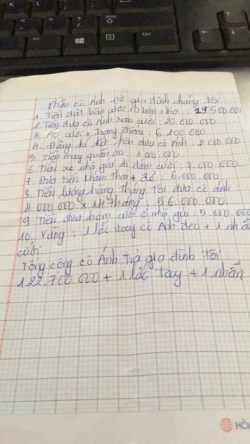 Phần cô Ánh trả gia đình chúng tôi
1. Tiền đặt tiệc cưới 10 bàn + bia: 29.500.000
2. Tiền đưa cô Ánh sau cưới: 20.000.000
3. Áo cưới + Trang điểm: 6.200.000
4. Đăng ký kết hôn đưa cô Ánh 2.000.000
5. Tiền may quần áo: 1.000.000
6. Tiền xe nhà gái đi đám cưới: 7.000.000
7. Đưa tiền khám thai + đẻ 6.000.000
8. Tiền lương hàng tháng tôi đưa cô ánh
4.000.000 x 14 tháng 56.000.000
9. Tiền đưa đám cưới ở nhà gái 5.000.000
10. Vàng: 1 lắc tay cô Ánh đeo + 1 nhẫn
cưới
Tổng cộng cô Ánh trả gia đình tôi
122.700.000 + 1 lắc tay + 1 nhẫn